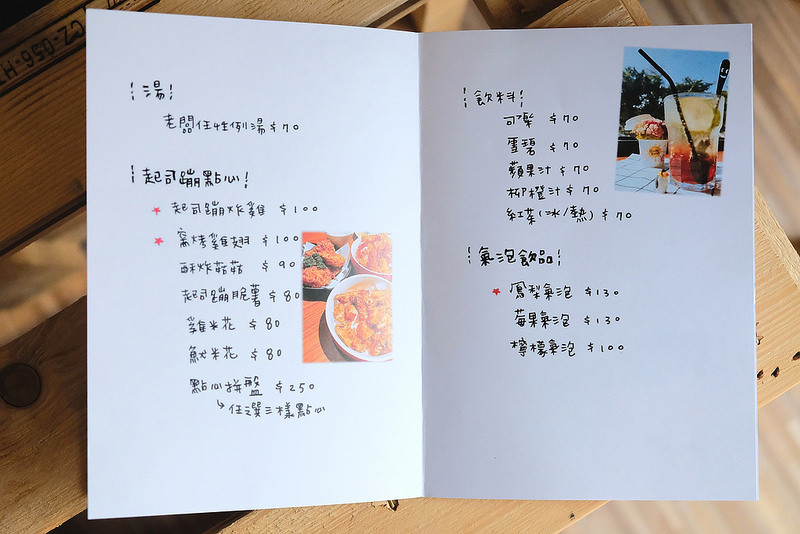 CZ-056-H
湯
老闆任性例湯 $70
起司蹦點心!
★ 起司蹦炸雞 $100
★ 窯烤雞翅 $100
酥炸菇菇 $90
起司蹦脆薯 $80
雞米花 $80
魷米花 $80
點心拼盤 $250
↳任選三樣點心
飲料
可樂 $70
雪碧 $70
蘋果汁 $70
柳橙汁 $70
紅茶(冰/熱) $70
氣泡飲品
★ 鳳梨氣泡 $130
莓果氣泡 $130
檸檬氣泡 $100